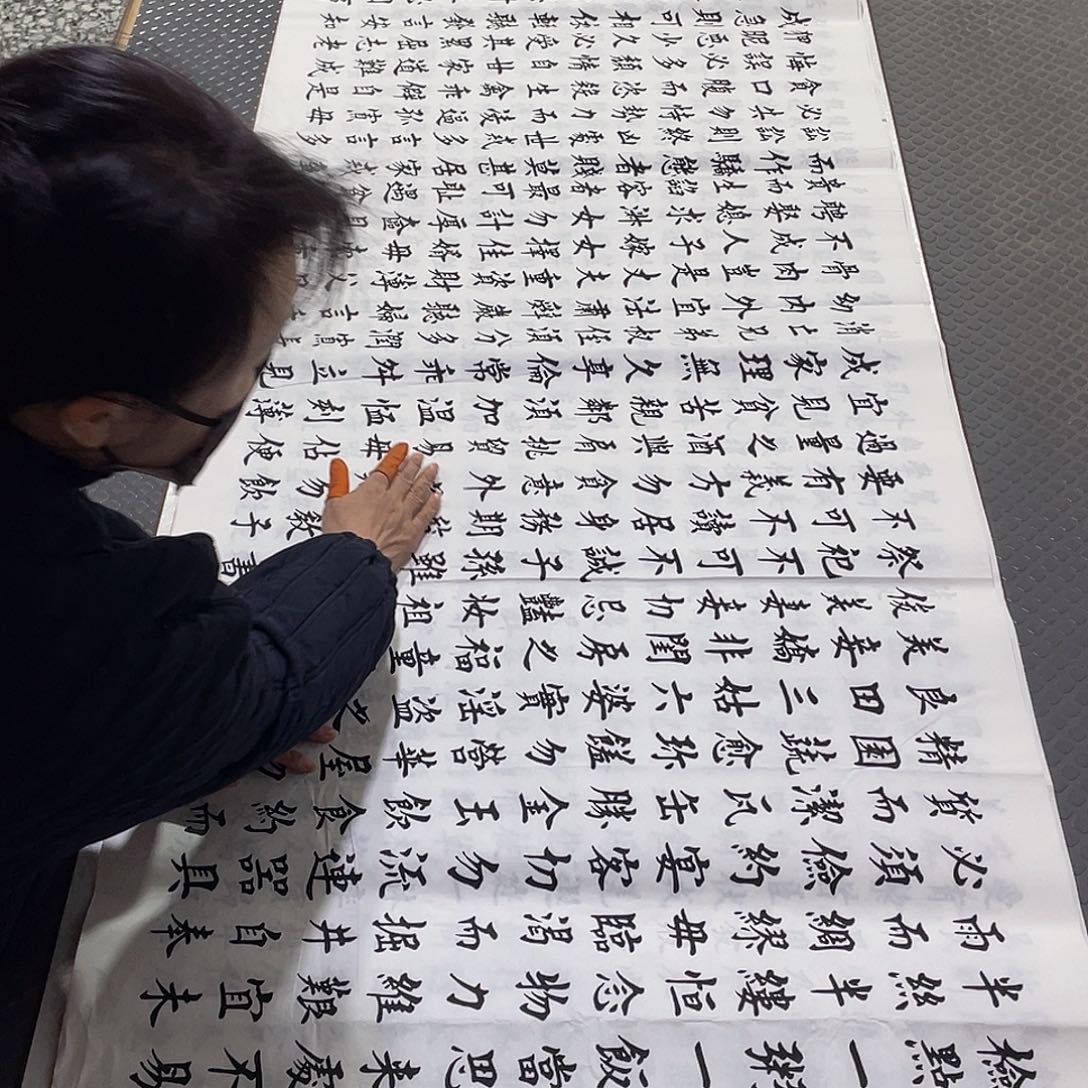 檢點一粥一飯當思來處不易
半絲半縷恒念物力維艱宜未
雨而綢繆毋臨渴而掘井自奉
必須儉約宴客切勿流連器具
質而潔瓦缶勝金玉飲食約而
精園蔬愈珍饈勿營華屋勿
良田三姑六婆實淫盜之
美妾嬌非閨房之福童
俊美妻妾切忌艷妝祖
祭祀不可不誠子孫雖書
不可不讀居身務期教子
要有義方勿貪意外勿飲
過量之酒與肩挑貿易毋佔便
宜見貧苦親鄰須加溫恤刻薄
成家理無久享倫常乖舛立見
消亡兄弟叔侄須分多潤
幼內外宜法肅辭嚴聽婦言
骨肉豈是丈夫重資財薄父
不成人子嫁女擇佳婿毋
聘娶媳求淑女勿計厚奩
貴而生諂容者最可恥遇
而作驕態者賤莫甚居家戒
訟訟則終凶處世戒多言言多
必失勿恃勢力而凌逼孤
貪口腹而恣殺生禽乖僻自是
悔誤必多頹惰自甘家道難成
狎暱惡少久必受其累屈志老
成急則可相依輕聽發言安知